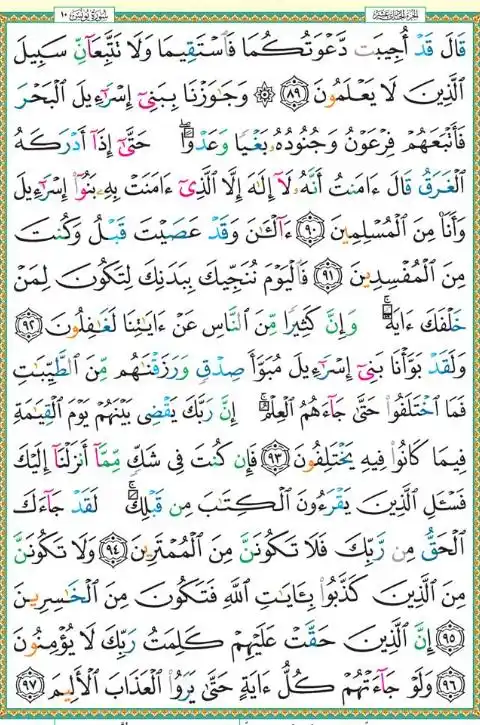 سُورَةُ يُونُسَ ١٠
قَالَ قَدْ أُجِيبَت دَّعْوَتُكُمَا فَاسْتَقِيمَا وَلَا تَتَّبِعَآنِّ سَبِيلَ
الَّذِينَ لَا يَعْلَمُونَ ﴿٨٩﴾ ۞ وَجَٰوَزْنَا بِبَنِىٓ إِسْرَٰٓءِيلَ الْبَحْرَ
فَأَتْبَعَهُمْ فِرْعَوْنُ وَجُنُودُهُۥ بَغْيًا وَعَدْوًا ۖ حَتَّىٰٓ إِذَآ أَدْرَكَهُ
الْغَرَقُ قَالَ ءَامَنتُ أَنَّهُۥ لَآ إِلَٰهَ إِلَّا الَّذِىٓ ءَامَنَتْ بِهِۦ بَنُوٓا۟ إِسْرَٰٓءِيلَ
وَأَنَا۠ مِنَ الْمُسْلِمِينَ ﴿٩٠﴾ ءَآلْـَٰٔنَ وَقَدْ عَصَيْتَ قَبْلُ وَكُنتَ
مِنَ الْمُفْسِدِينَ ﴿٩١﴾ فَالْيَوْمَ نُنَجِّيكَ بِبَدَنِكَ لِتَكُونَ لِمَنْ
خَلْفَكَ ءَايَةً ۚ وَإِنَّ كَثِيرًا مِّنَ النَّاسِ عَنْ ءَايَٰتِنَا لَغَٰفِلُونَ ﴿٩٢﴾
وَلَقَدْ بَوَّأْنَا بَنِىٓ إِسْرَٰٓءِيلَ مُبَوَّأَ صِدْقٍ وَرَزَقْنَٰهُم مِّنَ الطَّيِّبَٰتِ
فَمَا اخْتَلَفُوا۟ حَتَّىٰ جَآءَهُمُ الْعِلْمُ ۚ إِنَّ رَبَّكَ يَقْضِى بَيْنَهُمْ يَوْمَ الْقِيَٰمَةِ
فِيمَا كَانُوا۟ فِيهِ يَخْتَلِفُونَ ﴿٩٣﴾ فَإِن كُنتَ فِى شَكٍّ مِّمَّآ أَنزَلْنَآ إِلَيْكَ
فَسْـَٔلِ الَّذِينَ يَقْرَءُونَ الْكِتَٰبَ مِن قَبْلِكَ ۚ لَقَدْ جَآءَكَ
الْحَقُّ مِن رَّبِّكَ فَلَا تَكُونَنَّ مِنَ الْمُمْتَرِينَ ﴿٩٤﴾ وَلَا تَكُونَنَّ
مِنَ الَّذِينَ كَذَّبُوا۟ بِـَٔايَٰتِ اللَّهِ فَتَكُونَ مِنَ الْخَٰسِرِينَ
﴿٩٥﴾ إِنَّ الَّذِينَ حَقَّتْ عَلَيْهِمْ كَلِمَتُ رَبِّكَ لَا يُؤْمِنُونَ
﴿٩٦﴾ وَلَوْ جَآءَتْهُمْ كُلُّ ءَايَةٍ حَتَّىٰ يَرَوُا۟ الْعَذَابَ الْأَلِيمَ ﴿٩٧﴾